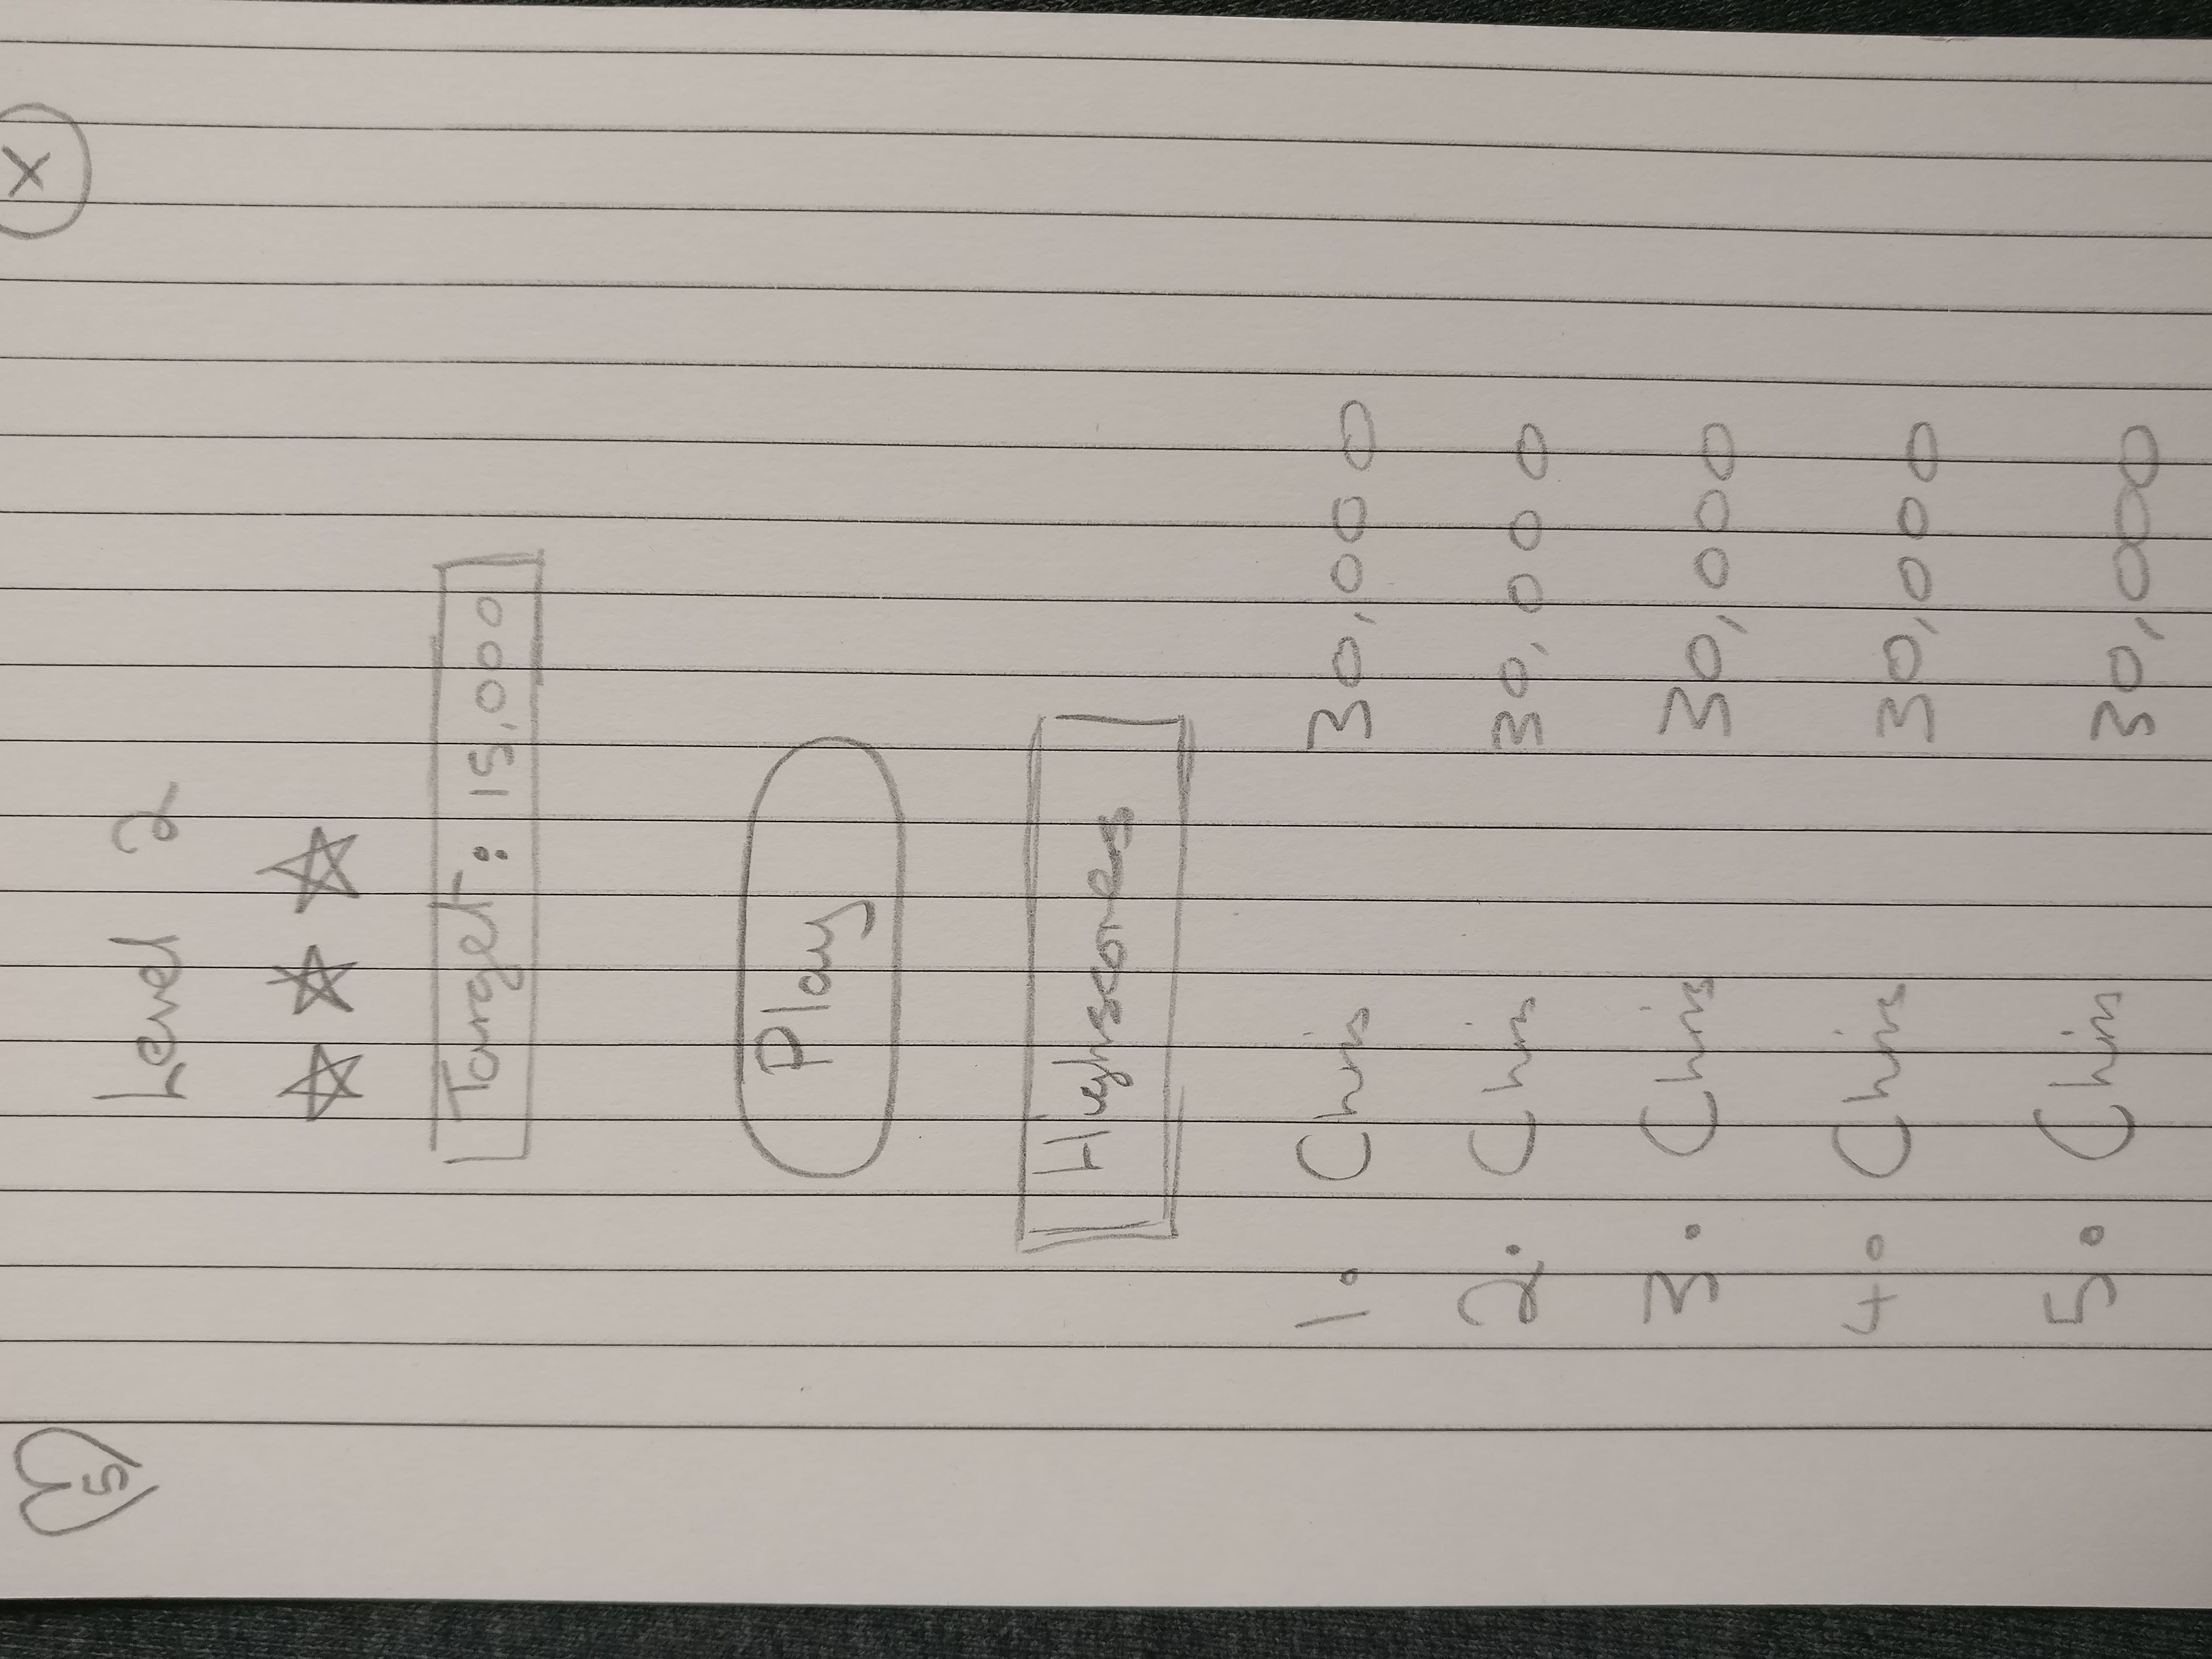 5
X
Level 2
Target: 15,000
Play
Highscores
1. Chris 30,000
2. Chris 30,000
3. Chris 30,000
4. Chris 30,000
5. Chris 30,000